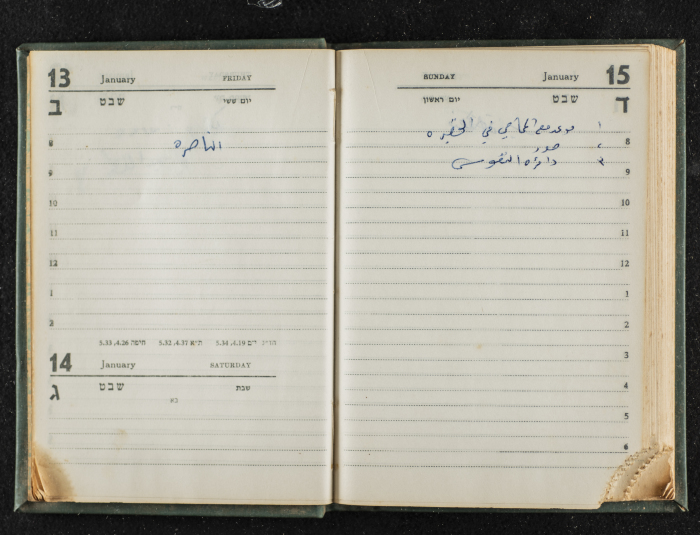 13 January FRIDAY
ב שבט יום ששי
8
الناصره
9
10
11
12
1
2
הדה״נ י־ם 4.19, 5.34 ת״א 4.37, 5.32 חיפה 4.26, 5.33
14 January SATURDAY
ג שבט שבת
בא
SUNDAY January 15
יום ראשון שבט ד
١ موعد مع المحامي في الخضيره
8
٢ صور
٣ دائرة النفوس
9
10
11
12
1
2
3
4
5
6